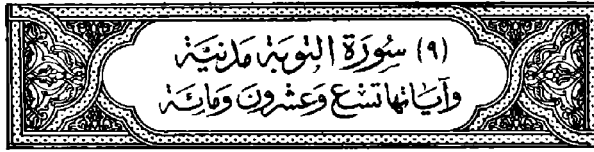 (٩) سُورَة التوبَة مَدنيَّة
وآيَاتها تسْع وَعشْرونَ وَمائة